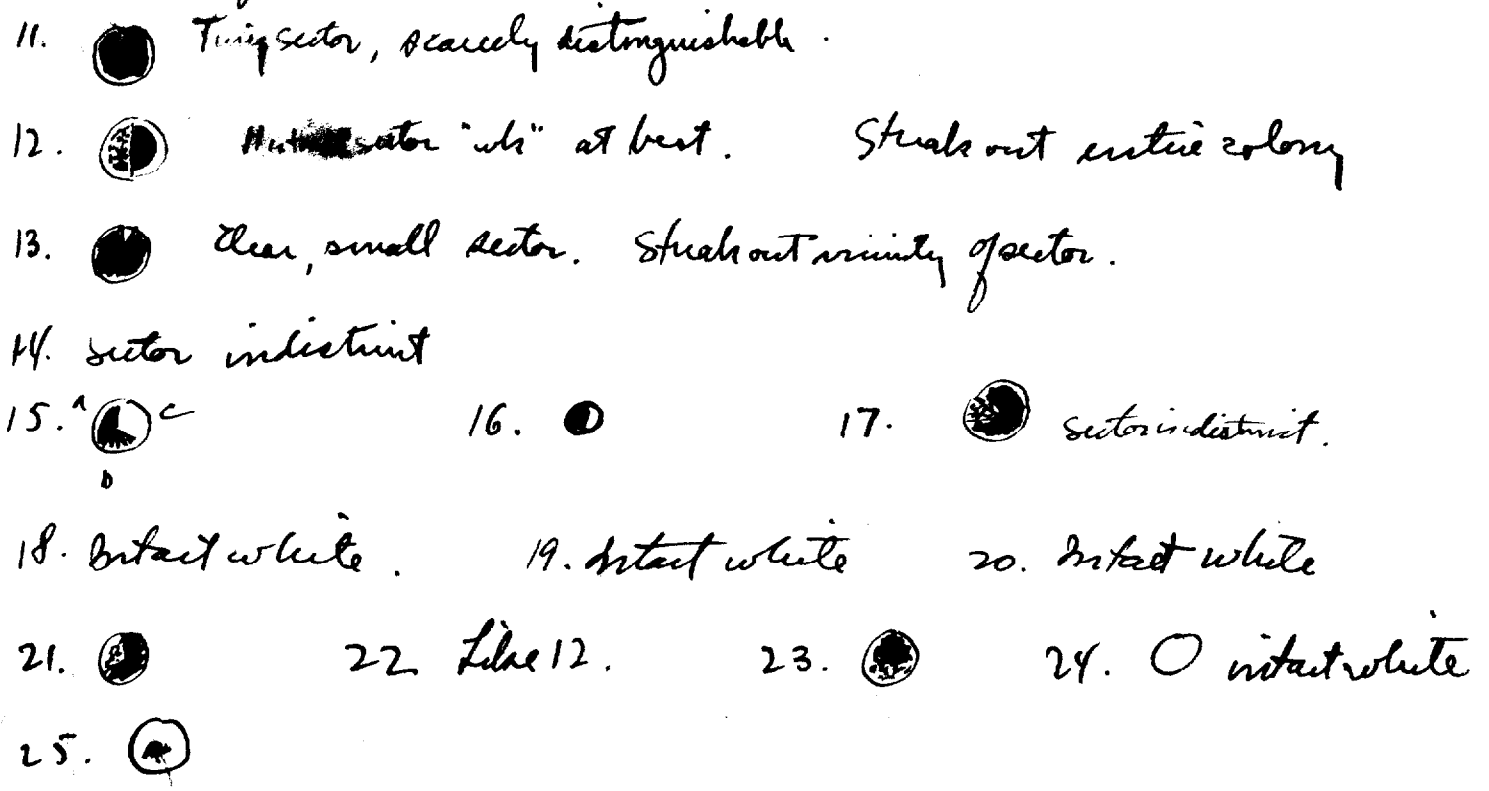 11. Tiny sector, scarcely distinguishable.
12. sector "wh" at best. Streak out entire colony
13. Clear, small sector. Streak out vicinity of sector.
14. sector indistinct
15. A C 16. 17. sector indistinct.
B
18. Intact white. 19. Intact white 20. Intact white
21. 22 Like 12. 23. 24. intact white
25.